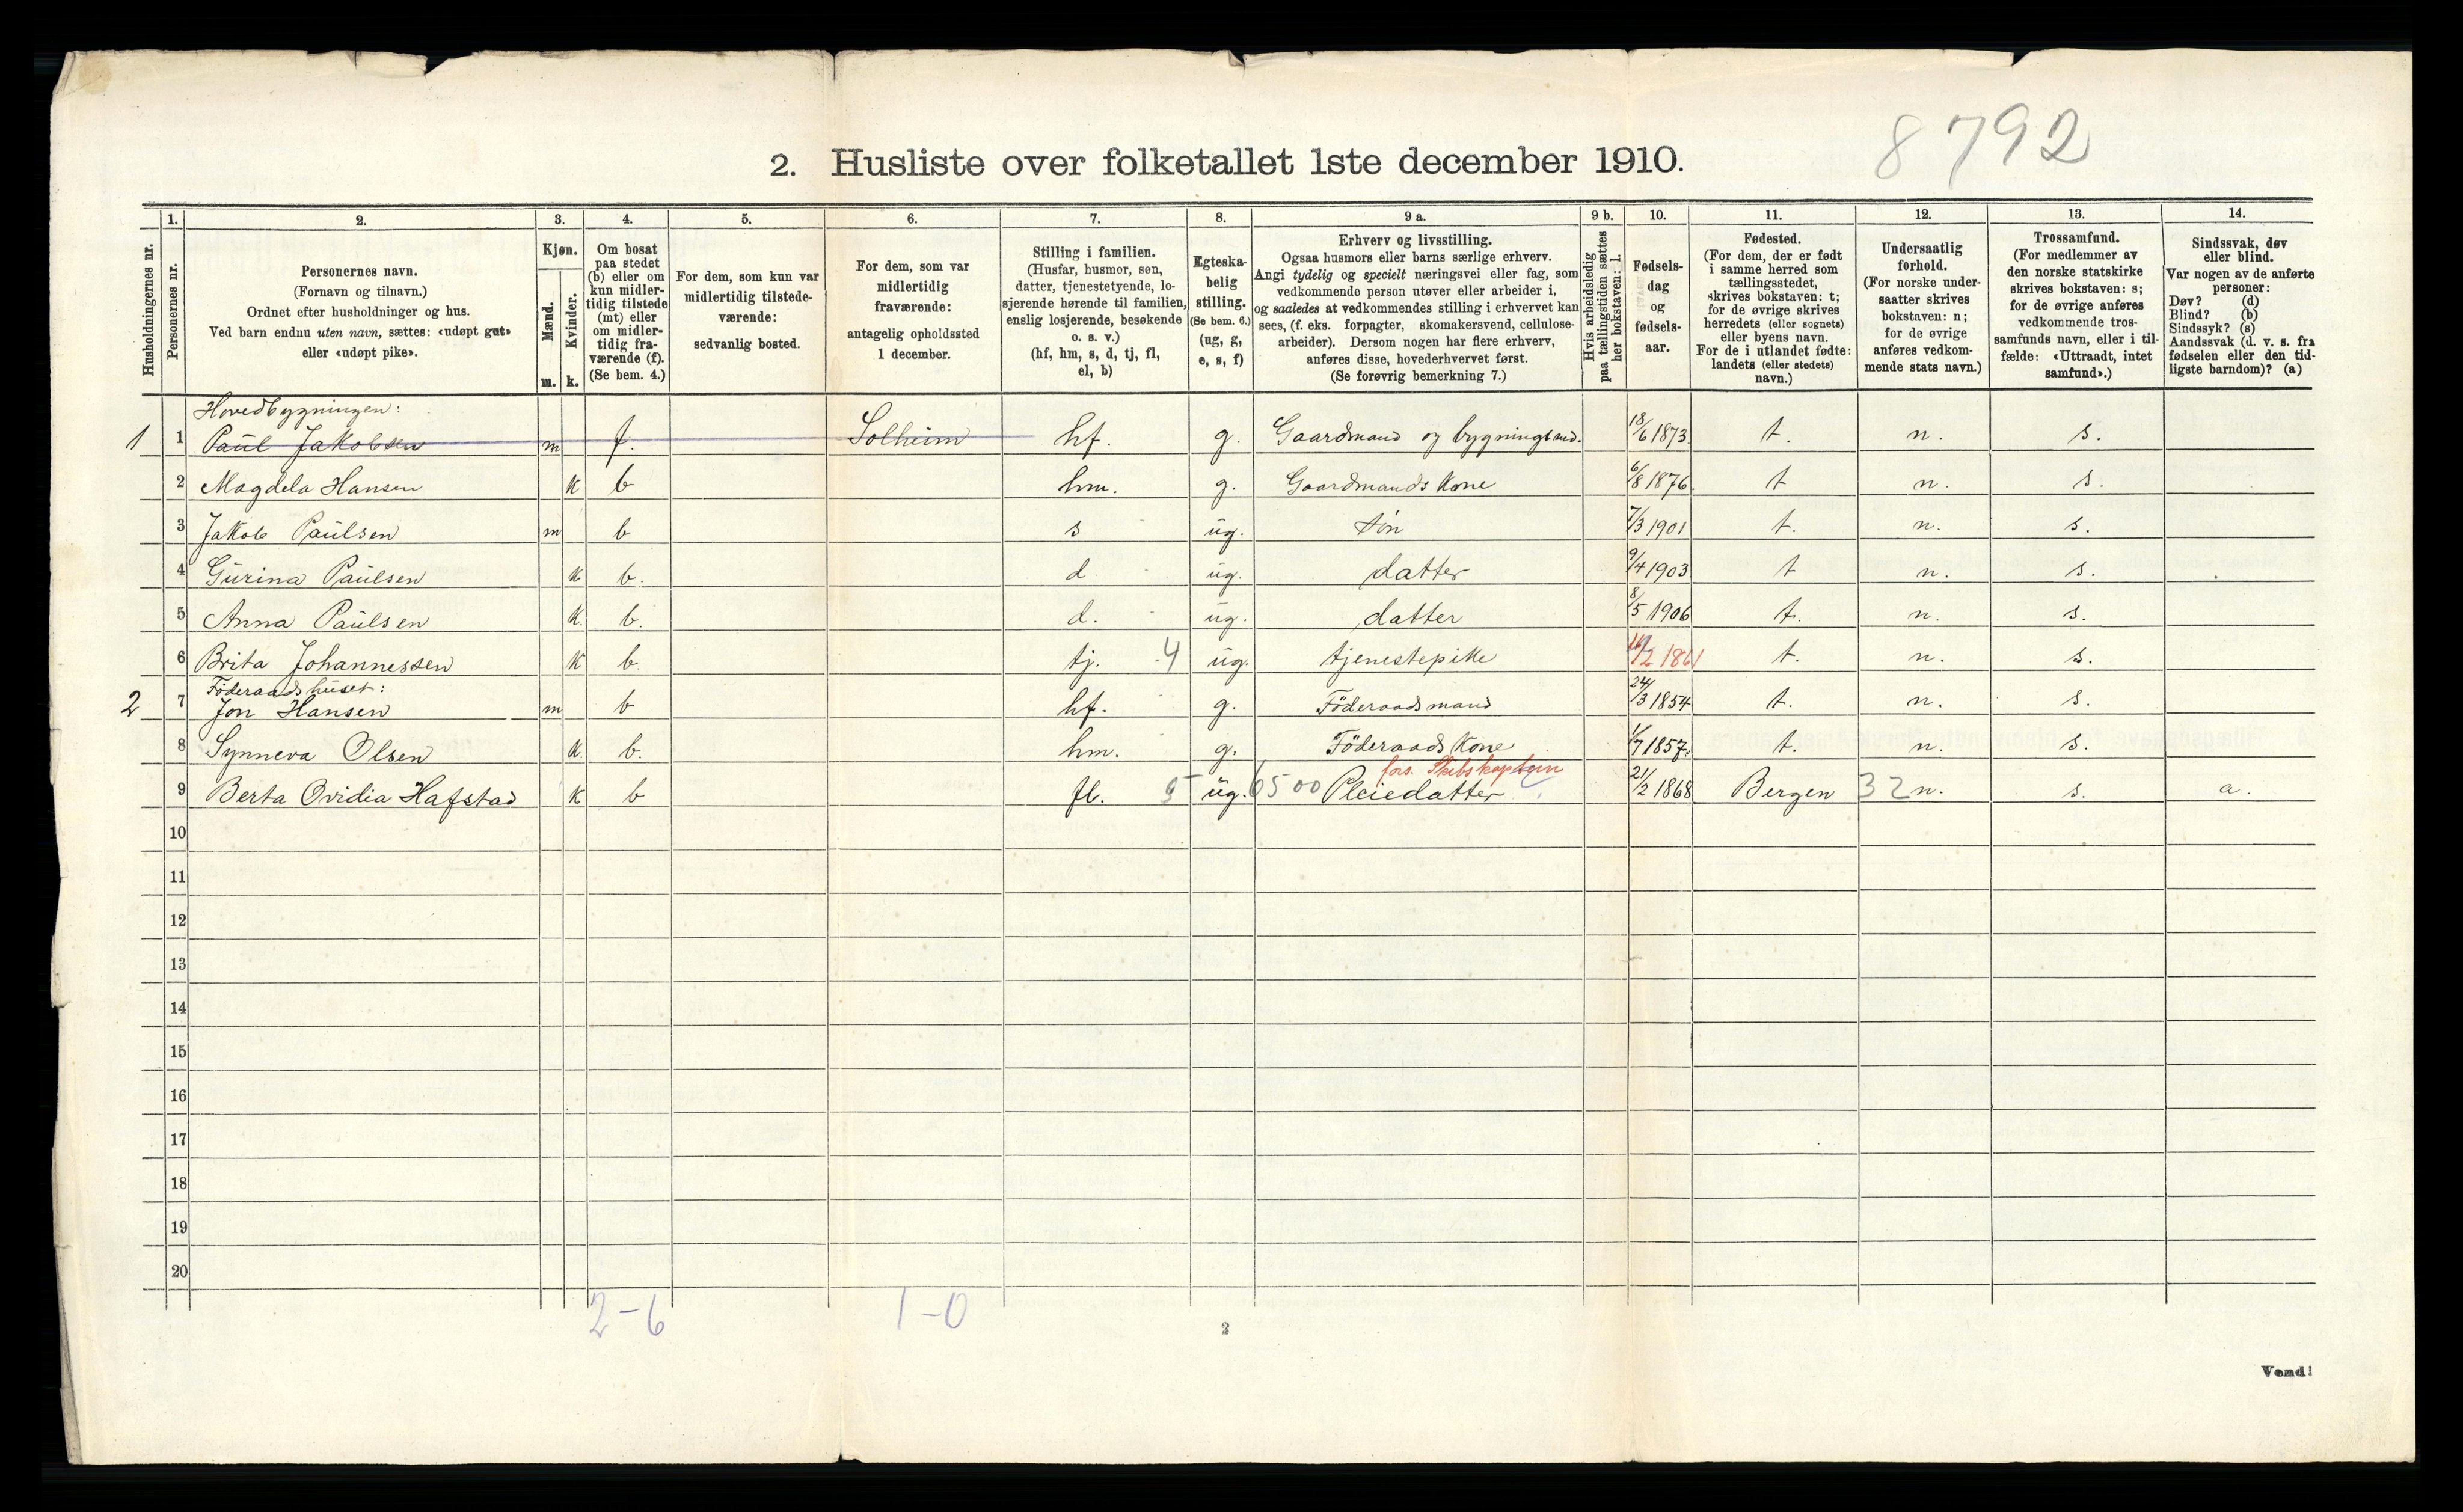 8792
2. Husliste over folketallet 1ste december 1910.
Husholdningernes nr.
1.
Personernes nr.
2.
Personernes navn.
(Fornavn og tilnavn.)
Ordnet efter husholdninger og hus.
Ved barn endnu uten navn, sættes: «udøpt gut»
eller «udøpt pike».
3.
Kjøn.
Mænd.
m.
Kvinder.
k.
4.
Om bosat
paa stedet
(b) eller om
kun midler-
tidig tilstede
(mt) eller
om midler-
tidig fra-
værende (f).
(Se bem. 4.)
5.
For dem, som kun var
midlertidig tilstede-
værende:
sedvanlig bosted.
6.
For dem, som var
midlertidig
fraværende:
antagelig opholdssted
1 december.
7.
Stilling i familien.
(Husfar, husmor, søn,
datter, tjenestetyende, lo-
sjerende hørende til familien,
enslig losjerende, besøkende
o. s. v.)
(hf, hm, s, d, tj, fl,
el, b)
8.
Egteska-
belig
stilling.
(Se bem. 6.)
(ug, g,
e, s, f)
9 a.
Erhverv og livsstilling.
Ogsaa husmors eller barns særlige erhverv.
Angi tydelig og specielt næringsvei eller fag, som
vedkommende person utøver eller arbeider i,
og saaledes at vedkommendes stilling i erhvervet kan
sees, (f. eks. forpagter, skomakersvend, cellulose-
arbeider). Dersom nogen har flere erhverv,
anføres disse, hovederhvervet først.
(Se forøvrig bemerkning 7.)
9 b.
Hvis arbeidsledig
paa tællingstiden sættes
her bokstaven: l.
10.
Fødsels-
dag
og
fødsels-
aar.
11.
Fødested.
(For dem, der er født
i samme herred som
tællingsstedet,
skrives bokstaven: t;
for de øvrige skrives
herredets (eller sognets)
eller byens navn.
For de i utlandet fødte:
landets (eller stedets)
navn.)
12.
Undersaatlig
forhold.
(For norske under-
saatter skrives
bokstaven: n;
for de øvrige
anføres vedkom-
mende stats navn.)
13.
Trossamfund.
(For medlemmer av
den norske statskirke
skrives bokstaven: s;
for de øvrige anføres
vedkommende tros-
samfunds navn, eller i til-
fælde: «Uttraadt, intet
samfund».)
14.
Sindssvak, døv
eller blind.
Var nogen av de anførte
personer:
Døv? (d)
Blind? (b)
Sindssyk? (s)
Aandssvak (d. v. s. fra
fødselen eller den tid-
ligste barndom)? (a)
Hovedbygningen:
1 1 Paul Jakobsen m f. Solheim hf. g. Gaardmand og bygningsmd. 18/6 1873. t. n. s.
2 Magdela Hansen k b hm. g. Gaardmands kone 6/8 1876. t n. s.
3 Jakob Paulsen m b s ug. søn 7/3 1901 t. n. s.
4 Gurina Paulsen k b. d ug. datter 9/4 1903 t n. s.
5 Anna Paulsen k. b. d. ug. datter 8/5 1906 t. n. s.
6 Brita Johannessen k b. tj. 4 ug. tjenestepike /2 1861 t. n. s.
Föderaadshuset:
2 7 Jon Hansen m b hf. g. Föderaadsmand 24/3 1854 t. n. s.
8 Synneva Olsen k. b. hm. g. Föderaads kone 1/7 1857. t. n. s.
fors. Skibskaptein
9 Berta Ovidia Hafstad k b fl. 5 ug. 6500 Pleiedatter 21/2 1868 Bergen 32 n. s. a.
10
11
12
13
14
15
16
17
18
19
20
2-6 1-0
2
Vend!